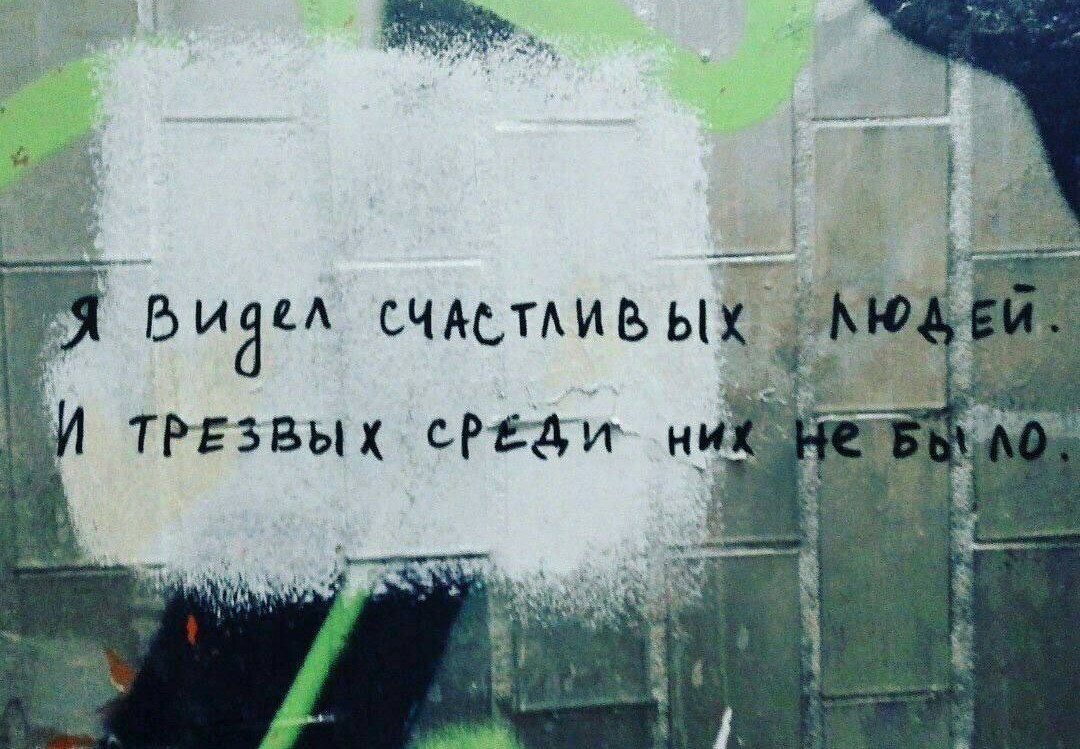 Я видел счастливых людей.
И трезвых среди них не было.